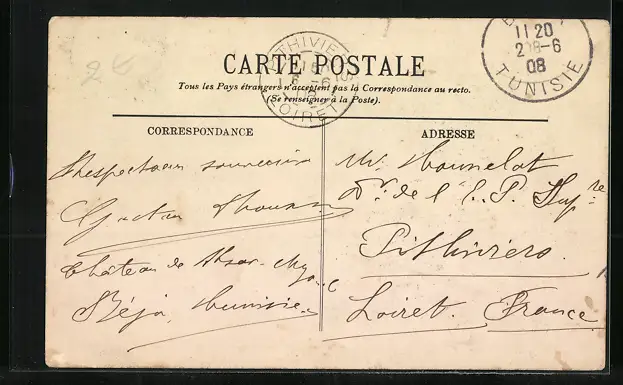 CARTE POSTALE
Tous les Pays étrangers n'acceptent pas la Correspondance au recto.
(Se renseigner à la Poste).
THIVIE
LOIRET
11 20
8-6
08
TUNISIE
CORRESPONDANCE
Respectueux souvenirs
Château de
Béja, Tunisie
ADRESSE
Mr
Dr de l'E. P. Supre
Pithiviers
Loiret. France